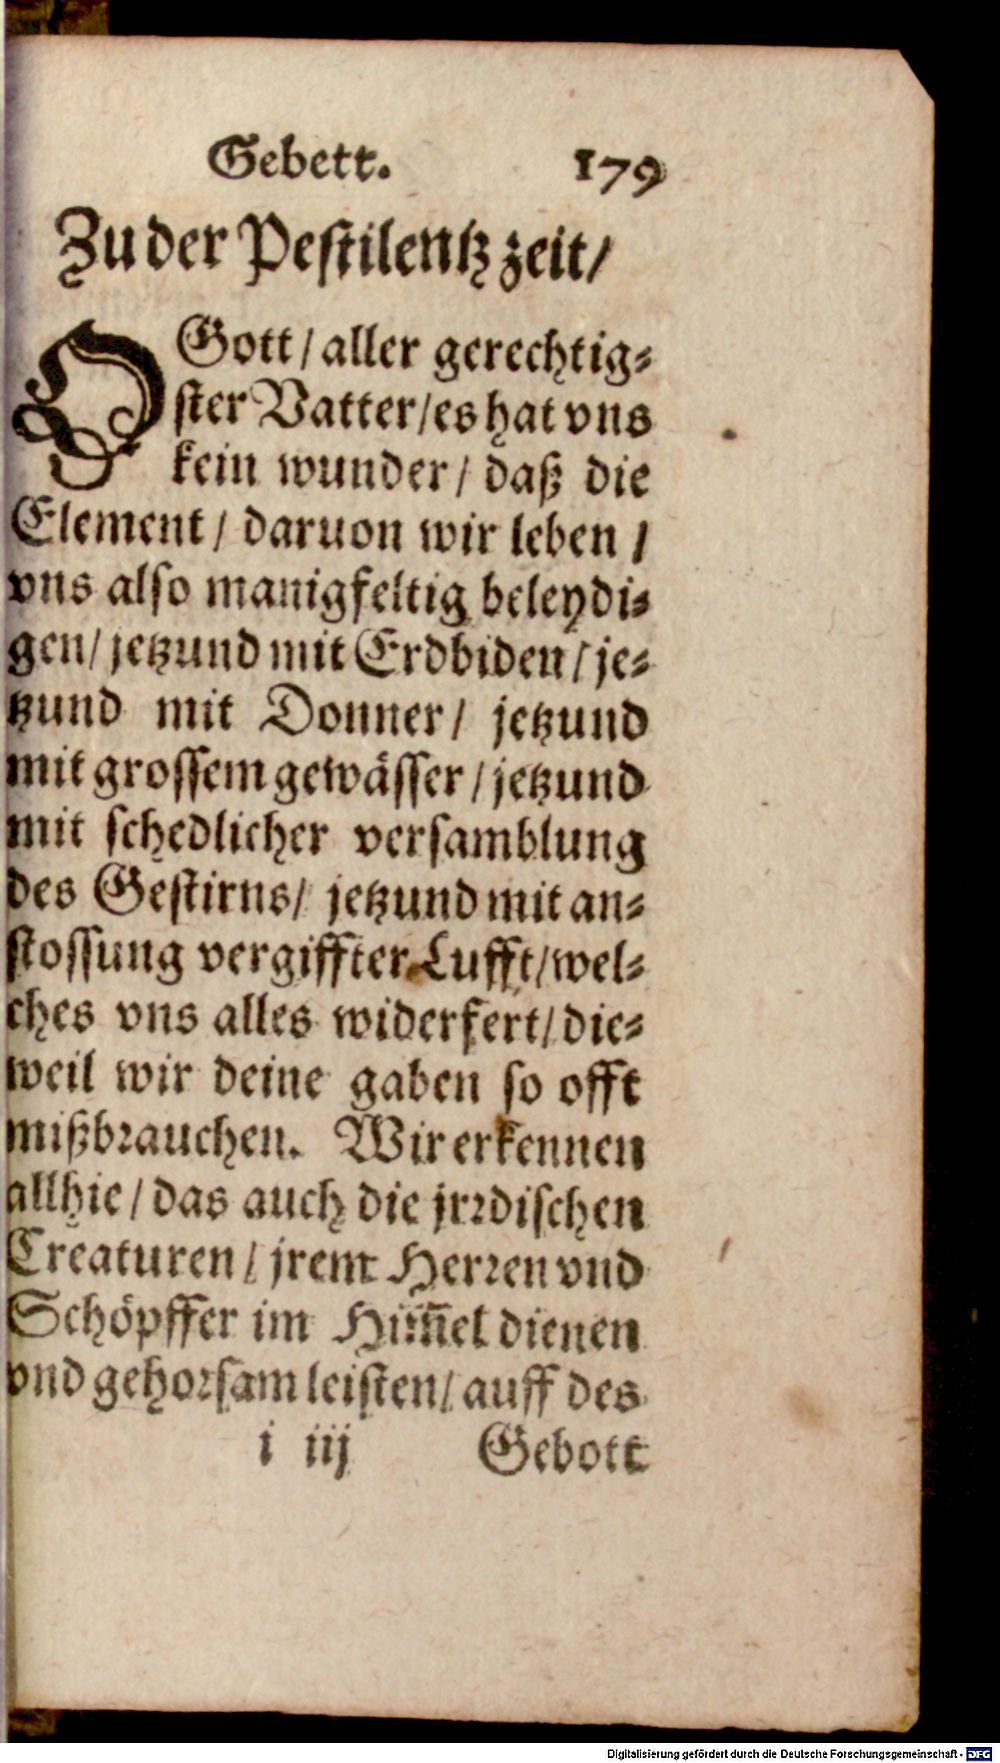 Gebett. 179
Zu der Pestilentz zeit/
O Gott/ aller gerechtig-
ster Vatter/ es hat vns
kein wunder/ daß die
Element/ daruon wir leben/
vns also manigfeltig beleydi-
gen/ jetzund mit Erdbiden/ je-
tzund mit Donner/ jetzund
mit grossem gewässer/ jetzund
mit schedlicher versamblung
des Gestirns/ jetzund mit an-
stossung vergiffter Lufft/ wel-
ches vns alles widerfert/ die-
weil wir deine gaben so offt
mißbrauchen. Wir erkennen
allhie/ das auch die jrrdischen
Creaturen/ jrem Herren vnd
Schöpffer im Him̅el dienen
vnd gehorsam leisten/ auff des
i iij Gebott
Digitalisierung gefördert durch die Deutsche Forschungsgemeinschaft - DFG